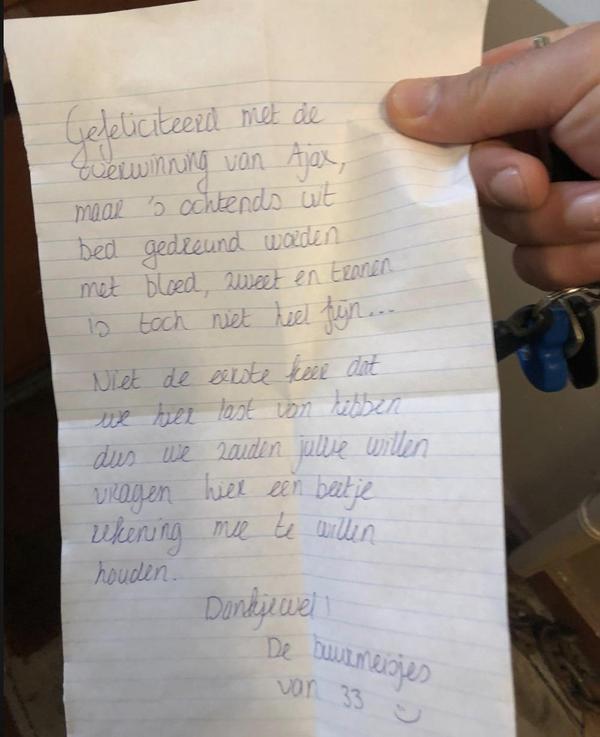 Gefeliciteerd met de
overwinning van Ajax,
maar 's ochtends uit
bed gedreund worden
met bloed, zweet en tranen
is toch niet heel fijn...
Niet de eerste keer dat
we hier last van hebben
dus we zouden jullie willen
vragen hier een beetje
rekening mee te willen
houden.
Dankjewel!
De buurmeisjes
van 33 :)